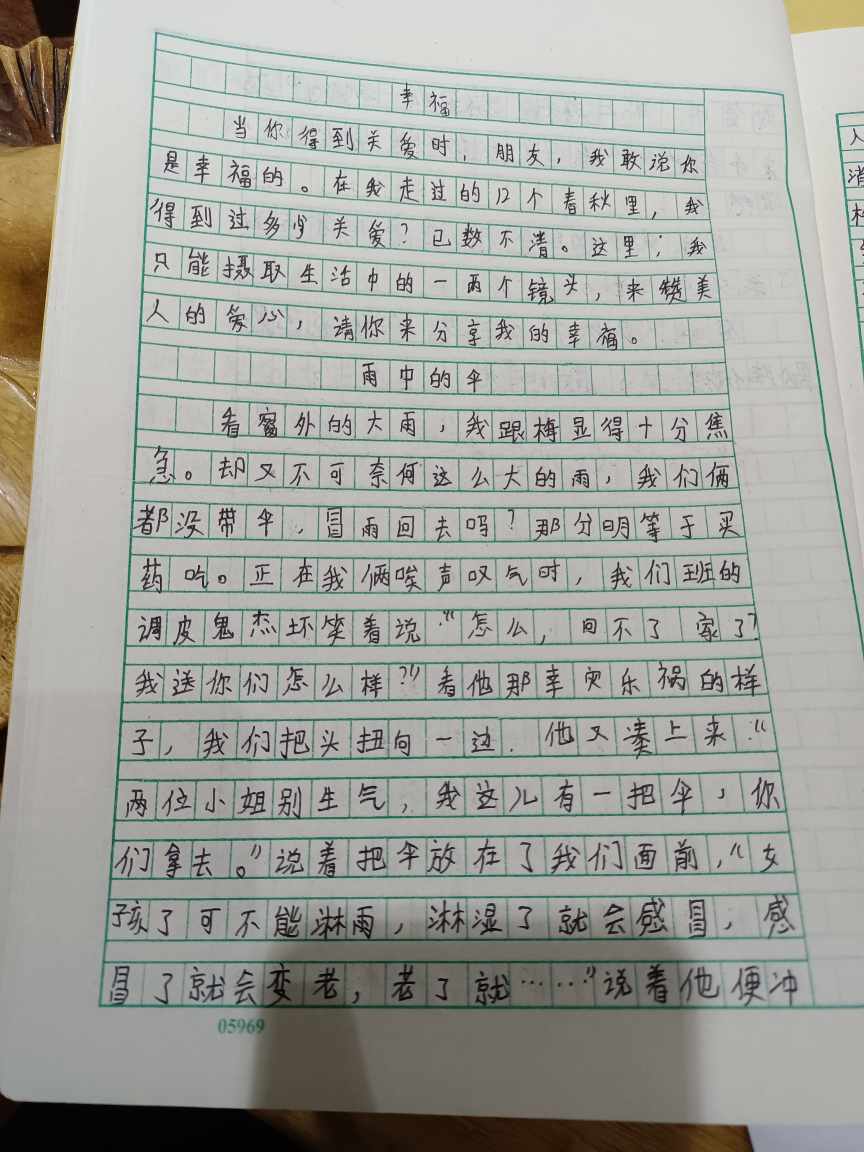 幸福
当你得到关爱时，朋友，我敢说你
是幸福的。在我走过的12个春秋里，我
得到过多少关爱？已数不清。这里；我
只能摄取生活中的一两个镜头，来赞美
人的爱心，请你来分享我的幸福。
雨中的伞
看窗外的大雨，我跟梅显得十分焦
急。却又不可奈何这么大的雨，我们俩
都没带伞，冒雨回去吗？那分明等于买
药吃。正在我俩唉声叹气时，我们班的
调皮鬼杰坏笑着说“怎么，回不了家了？
我送你们怎么样？”看他那幸灾乐祸的样
子，我们把头扭向一边．他又凑上来：“
两位小姐别生气，我这儿有一把伞，你
们拿去。”说着把伞放在了我们面前，“女
孩了可不能淋雨，淋湿了就会感冒，感
冒了就会变老，老了就……”说着他便冲
05969